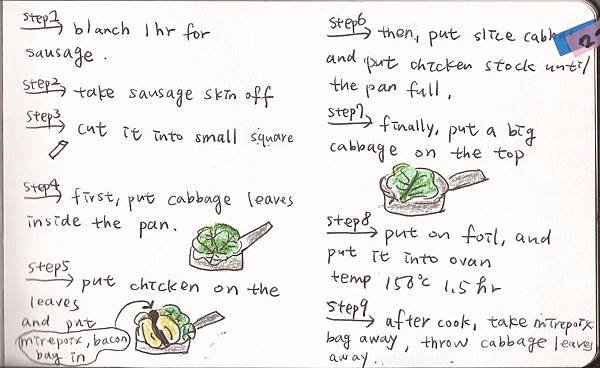 step1
blanch 1hr for
sausage.
step2
take sausage skin off
step3
cut it into small square
step4
first, put cabbage leaves
inside the pan.
step5
put chicken on the
leaves
and put
mirepoix, bacon
bag in
step6
then, put slice
and put chicken stock until
the pan full.
step7
finally, put a big
cabbage on the top
step8
put on foil, and
put it into ovan
temp 150°c 1.5 hr
step9
after cook, take mirepoix
bag away, throw cabbage leaves
away.